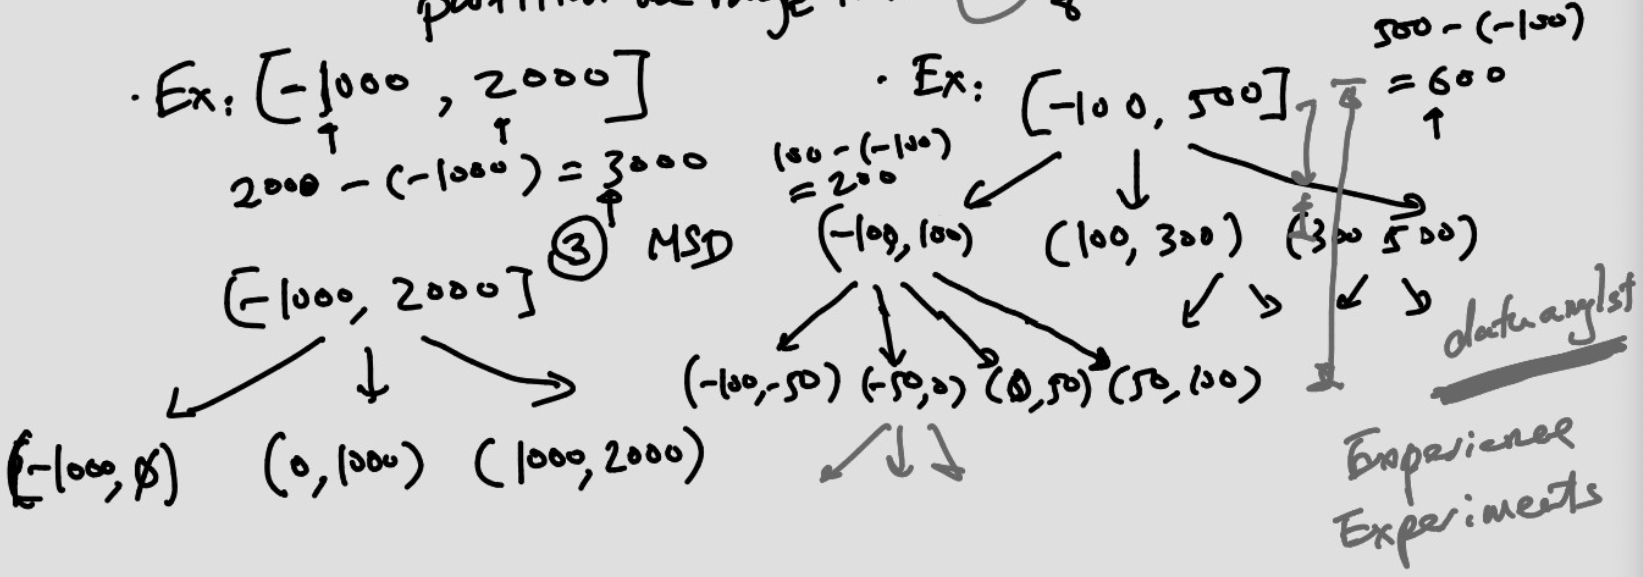 · Ex: [-1000, 2000]
2000 - (-1000) = 3000
③ MSD
[-1000, 2000]
[-1000, 0) (0, 1000) (1000, 2000)
· Ex: [-100, 500]
500 - (-100)
= 600
100 - (-100)
= 200
(-100, 100) (100, 300) (300 500)
(-100, -50) (-50, 0) (0, 50) (50, 100)
Experience
Experiments